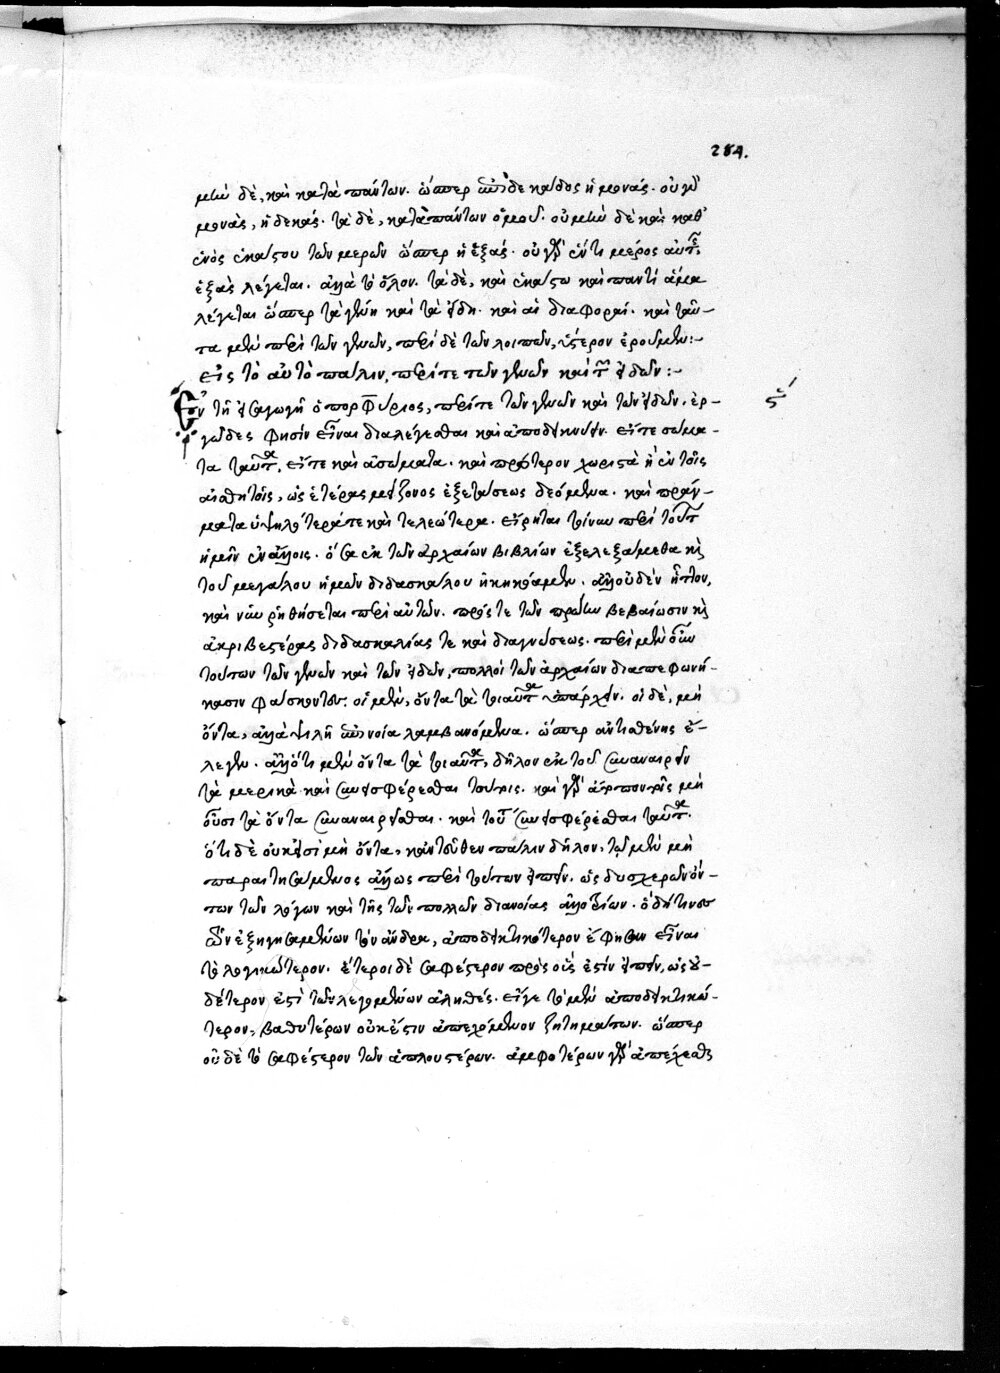 284.
μὲν δὲ, καὶ κατὰ πάντων. ὥσπερ ἐπὶ δεκάδος ἡ μονάς. οὐ γὰρ
μονὰς, ἡ δεκάς. τὰ δὲ, κατὰ πάντων ὁμοῦ. οὐ μὲν δὲ καὶ καθ'
ἑνὸς ἑκάστου τῶν μερῶν ὥσπερ ἡ ἑξάς. οὐ γὰρ ἕν τι μέρος αὐτῆς
ἑξὰς λέγεται. ἀλλὰ τὸ ὅλον. τὰ δὲ, καὶ ἑκάστω καὶ παντὶ ἅμα
λέγεται ὥσπερ τὰ γένη καὶ τὰ εἴδη. καὶ αἱ διαφοραί. καὶ ταῦ-
τα μὲν περὶ τῶν γενῶν, περὶ δὲ τῶν λοιπῶν, ὕστερον ἐροῦμεν:-
εἰς τὸ αὐτὸ πάλιν, περί τε τῶν γενῶν καὶ τῶν εἰδῶν :-
ϛ´
Ἐν τῇ εἰσαγωγῇ ὁ πορφύριος, περί τε τῶν γενῶν καὶ τῶν εἰδῶν. ἐρ-
γῶδες φησὶν εἶναι διαλέγεσθαι καὶ ἀποδεικνύειν. εἴτε σώμα-
τα ταῦτα, εἴτε καὶ ἀσώματα. καὶ πρότερον χωριστὰ ἢ ἐν τοῖς
αἰσθητοῖς, ὡς ἑτέρας μείζονος ἐξετάσεως δεόμενα. καὶ πράγ-
ματα ὑψηλότερά τε καὶ τελεώτερα. εἴρηται τοίνυν περὶ τούτων
ἡμῖν ἐν ἄλλοις. ὅσα ἐκ τῶν ἀρχαίων βιβλίων ἐξελεξάμεθα καὶ
τοῦ μεγάλου ἡμῶν διδασκάλου ἠκηκόαμεν. ἀλλ' οὐδὲν ἧττον,
καὶ νῦν ῥηθήσεται περὶ αὐτῶν. πρός τε τῶν πρώτων βεβαίωσιν καὶ
ἀκριβεστέρας διδασκαλίας τε καὶ διαγνώσεως. περὶ μὲν οὖν
τούτων τῶν γενῶν καὶ τῶν εἰδῶν, πολλοὶ τῶν ἀρχαίων διαπεφωνή-
κασιν φάσκοντες. οἱ μὲν, ὄντα τὰ τοιαῦτα ὑπάρχειν. οἱ δὲ, μὴ
ὄντα, ἀλλὰ ψιλῇ ἐπινοία λαμβανόμενα. ὥσπερ ἀντισθένης ἔ-
λεγεν. ἀλλ' ὅτι μὲν ὄντα τὰ τοιαῦτα, δῆλον ἐκ τοῦ συναναιρεῖν
τὰ μερικὰ καὶ συνεισφέρεσθαι τούτοις. καὶ γὰρ ἄτοπον τοῖς μὴ
οὖσι τὰ ὄντα συναναιρεῖσθαι. καὶ τοῦ συνεισφέρεσθαι ταῦτα.
ὅτι δὲ οὐκ εἰσὶ μὴ ὄντα, κἀντεῦθεν πάλιν δῆλον, τῷ μὲν μὴ
παραιτησάμενος ἄλλως περὶ τούτων εἰπεῖν. ὡς δυσχερῶν ὄν-
των τῶν λόγων καὶ τῆς τῶν πολλῶν διανοίας ἀλλοτρίων. ὁ δή τινες
τῶν ἐξηγησαμένων τὸν ἄνδρα, ἀποδεικτικώτερον ἔφησαν εἶναι
τὸ λογικώτερον. ἕτεροι δὲ σαφέστερον πρὸς οὕς ἐστὶν εἰπεῖν, ὡς οὐ-
δέτερον ἐστὶ τῶν λεγομένων ἀληθές. εἴγε τὸ μὲν ἀποδεικτικώ-
τερον, βαθυτέρων οὐκ ἔστιν ἀπεχόμενον ζητημάτων. ὥσπερ
οὐδὲ τὸ σαφέστερον τῶν ἁπλουστέρων. ἀμφοτέρων γὰρ ἀπέχεσθαι